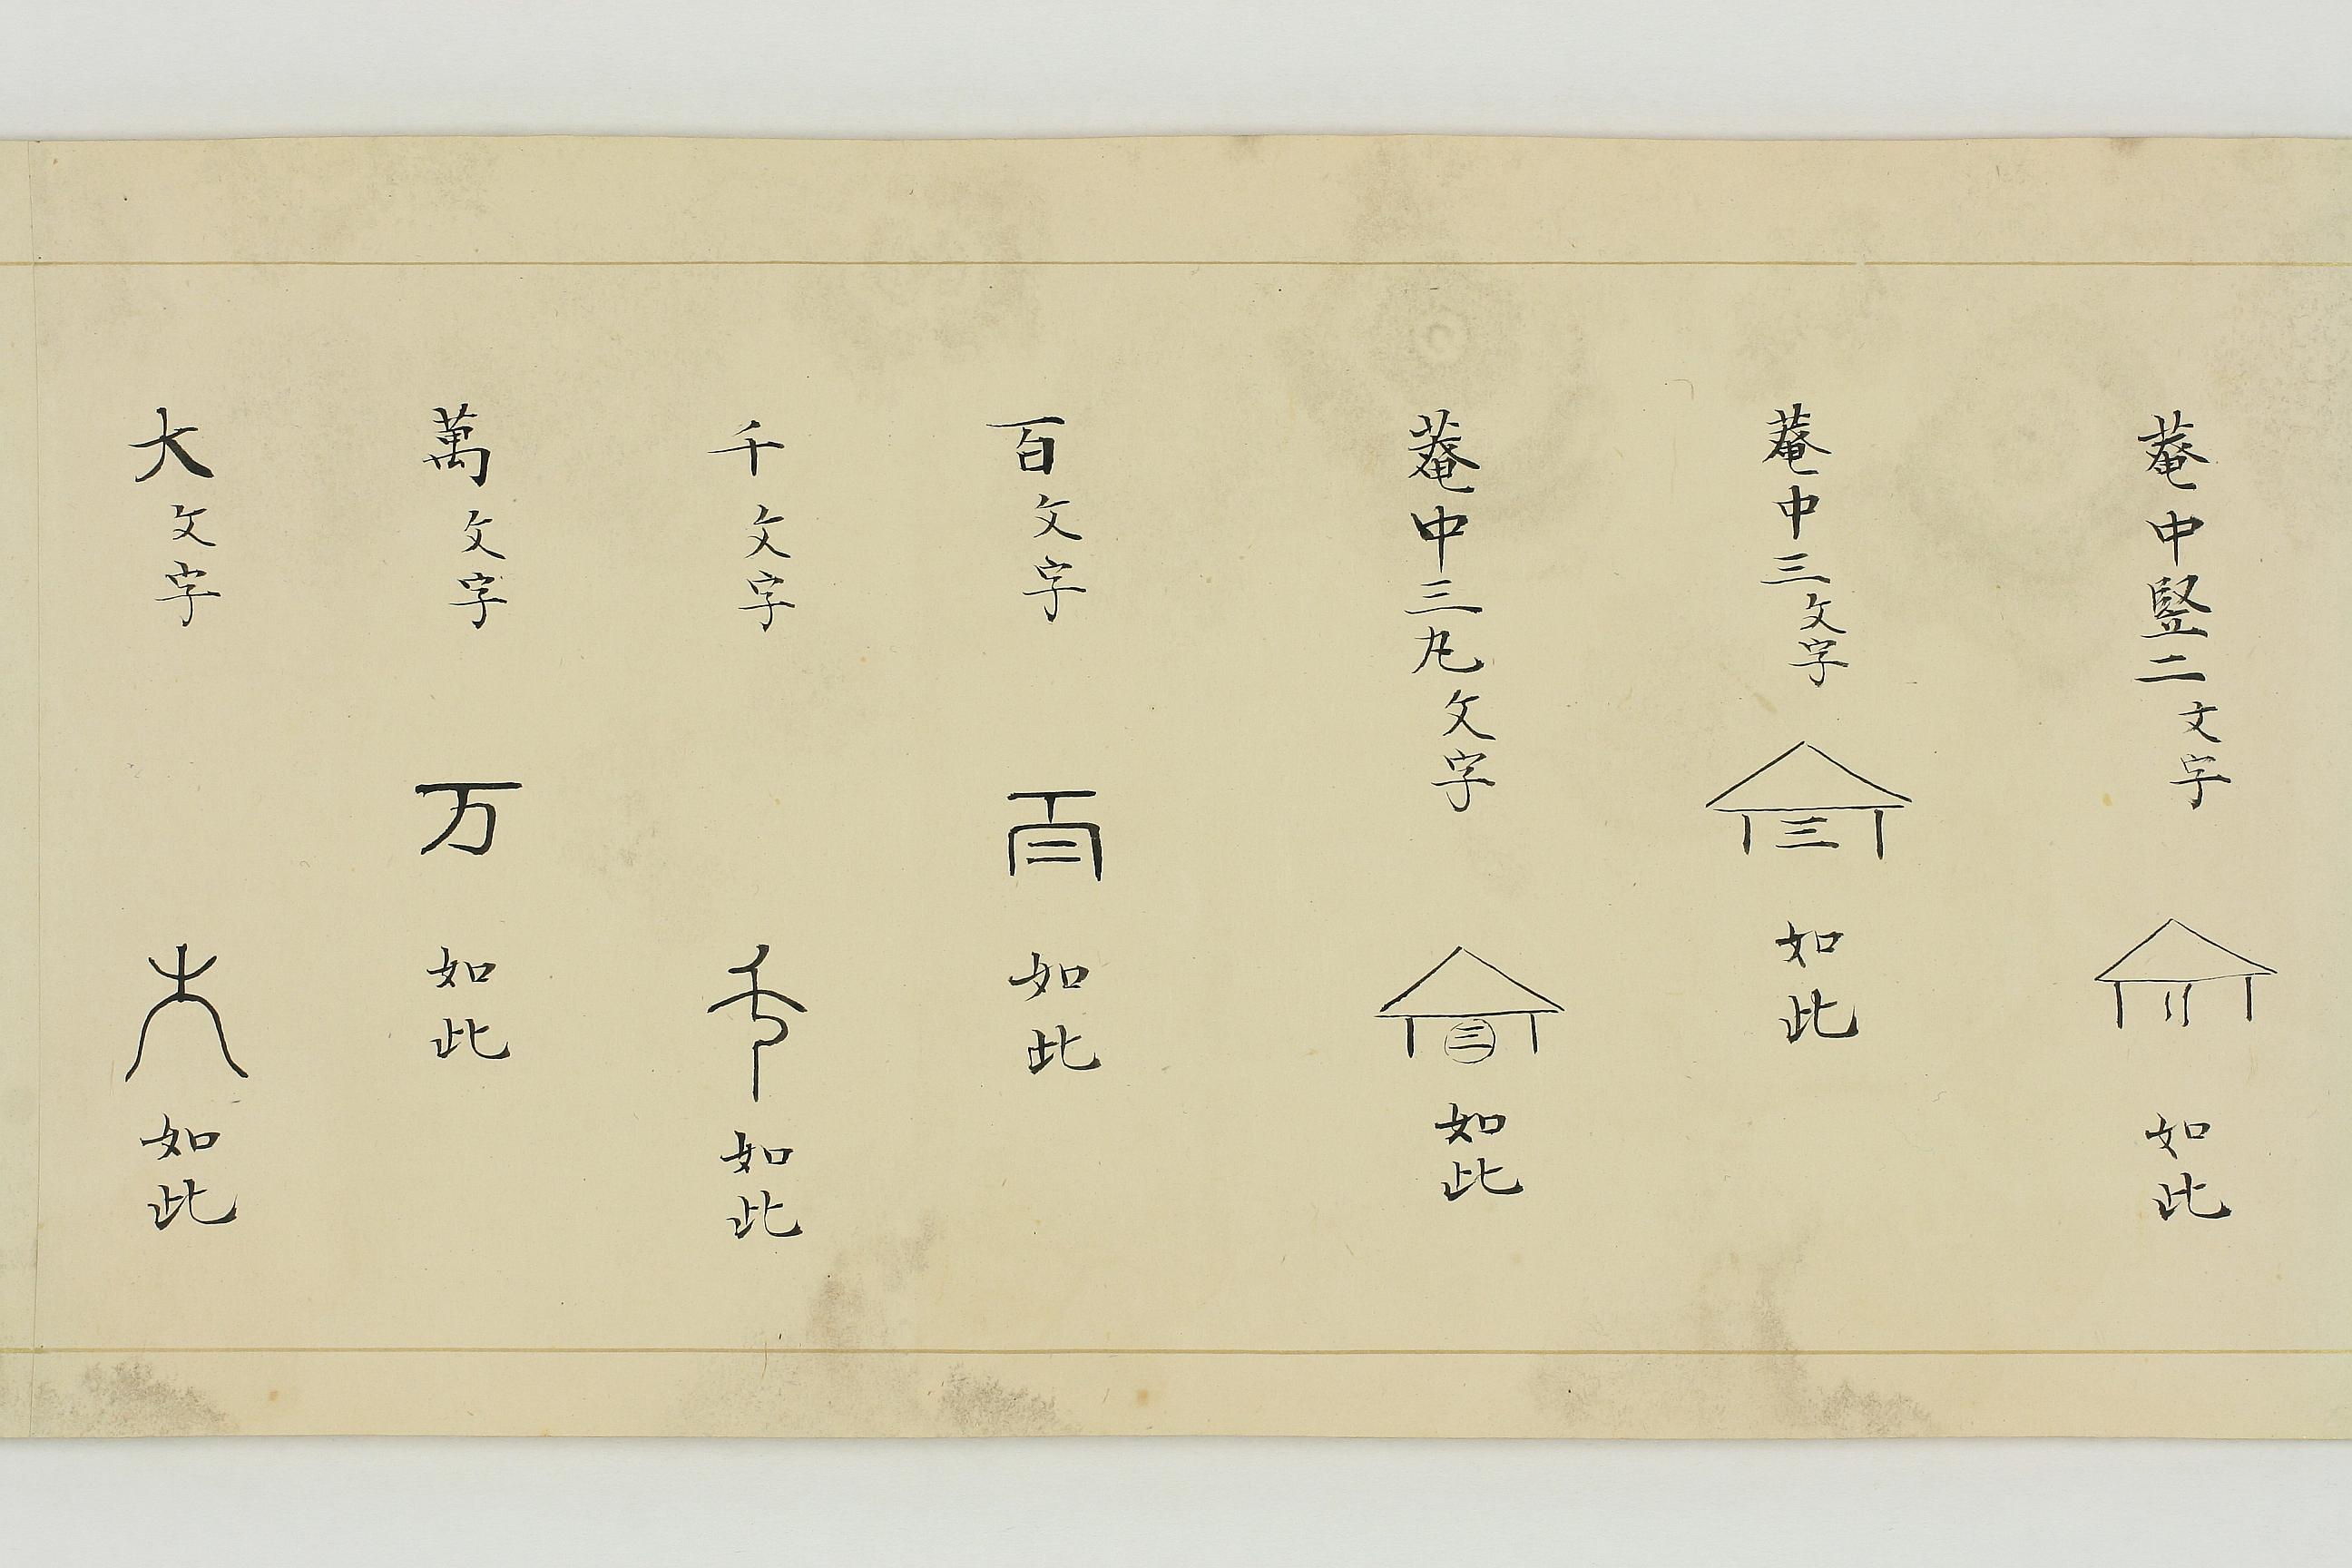 菴中竪二文字 如此
菴中三文字 三 如此
菴中三丸文字 三 如此
百文字 百 如此
千文字 千 如此
萬文字 万 如此
大文字 大 如此